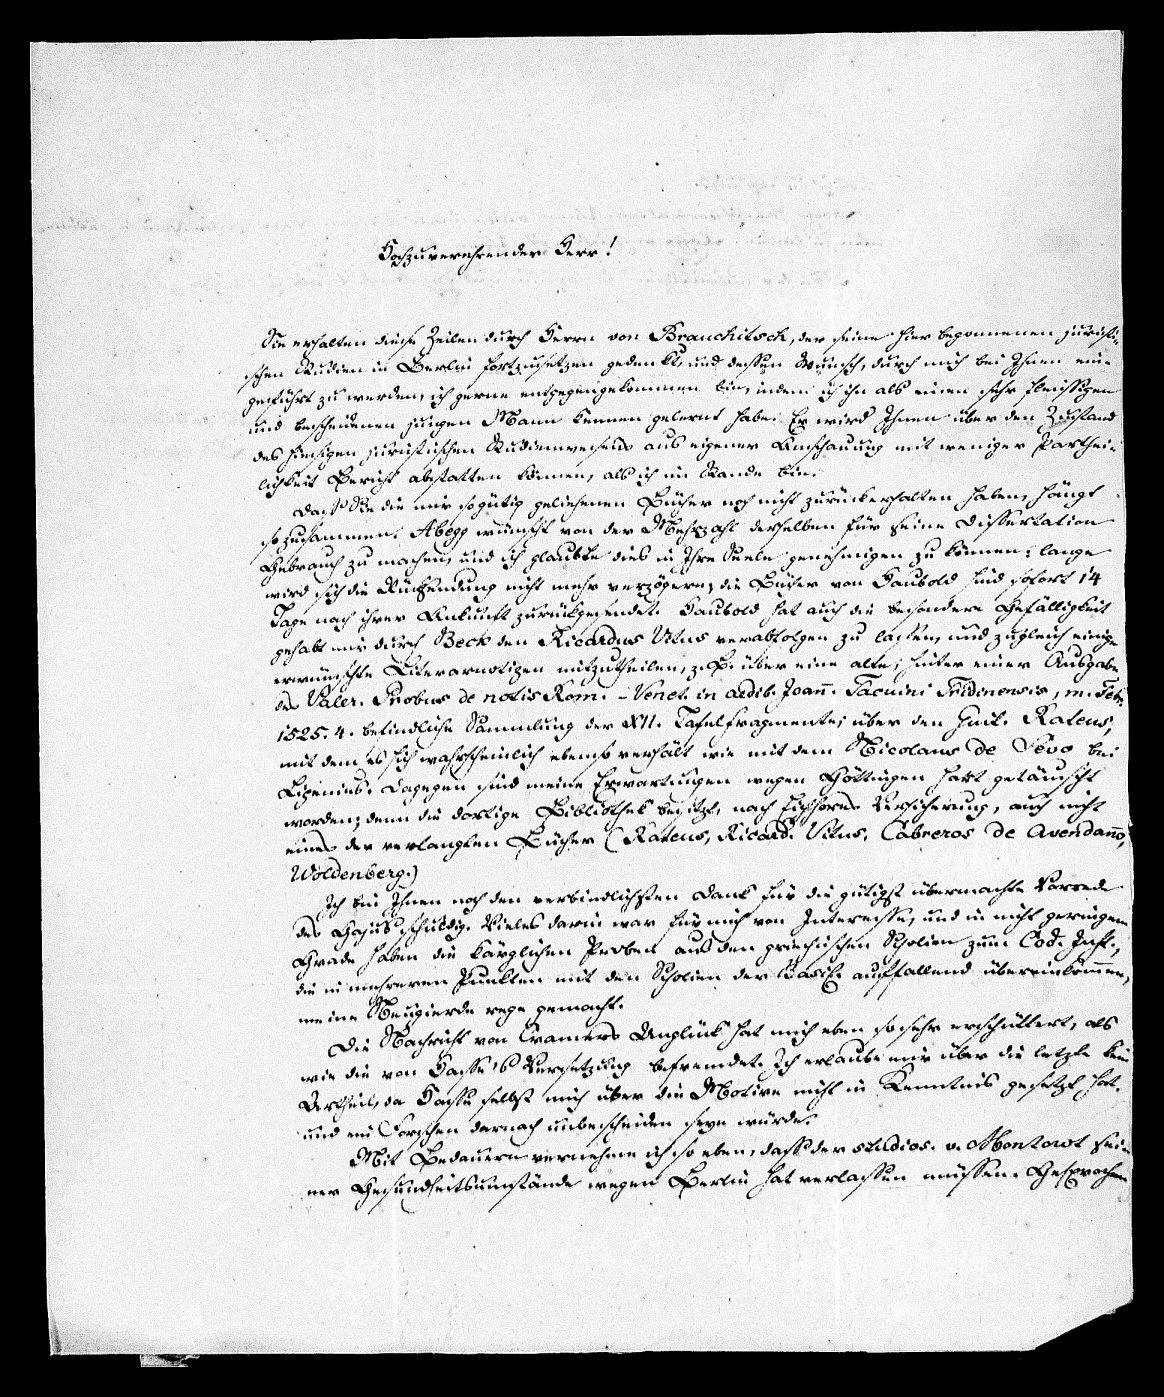 Hochzuverehrender Herr!
Sie erhalten diese Zeilen durch Herrn von Brauchitsch, der seine hier begonnenen juristi-
schen Studien in Berlin fortzusetzen gedenkt, und dessen Wunsch, durch mich bei Ihnen ein-
geführt zu werden, ich gerne entgegengekommen bin, indem ich ihn als einen sehr fleissigen
und bescheidenen jungen Mann kennen gelernt habe. Er wird Ihnen über den Zustand
des hiesigen juristischen Studienwesens aus eigener Anschauung mit weniger Parthei-
lichkeit Bericht abstatten können, als ich im Stande bin.
Dass Sie die mir so gütig geliehenen Bücher noch nicht zurückerhalten haben, hängt
so zusammen. Abegg wünscht von der Mehrzahl derselben für seine Dissertation
Gebrauch zu machen, und ich glaubte dies in Ihre Seele genehmigen zu können; lange
wird sich die Rücksendung nicht mehr verzögern; die Bücher von Haubold sind sofort 14
Tage nach ihrer Ankunft zurückgesendet. Haubold hat auch die besondere Gefälligkeit
gehabt mir durch Beck den Ricardus Vitus verabfolgen zu lassen, und zugleich einige
erwünschte Literarnotizen mitzutheilen, z. B. über eine alte, hinter einer Ausgabe
des Valer. Probus de notis Rom. – Venet. in aedib. Joann. Tacuini Tridinensis, m. Febr.
1525. 4. befindliche Sammlung der XII. Tafelfragmente; über den Guil. Rateus,
mit dem es sich wahrscheinlich ebenso verhält wie mit dem Nicolaus de Sevo bei
Lipenius. Dagegen sind meine Erwartungen wegen Göttingen hart getäuscht
worden; denn die dortige Bibliothek besitzt, nach Eichhorns Versicherung, auch nicht
eines der verlangten Bücher (Rateus, Ricard. Vitus, Cabreros de Avendanno,
Woldenberg.)
Ich bin Ihnen noch den verbindlichsten Dank für die gütigst übermachte Vorrede
des Gajus schuldig. Vieles darin war für mich von Interesse, und in nicht geringem
Grade haben die kärglichen Proben aus den griechischen Scholien zum Cod. Just.,
die in mehreren Punkten mit den Scholien der Basil. auffallend übereinkommen,
meine Neugierde rege gemacht.
Die Nachricht von Cramers Unglück hat mich eben so sehr erschüttert, als
wie die von Hasse's Versetzung befremdet. Ich erlaube mir über die letzte kein
Urtheil, da Hasse selbst mich über die Motive nicht in Kenntnis gesetzt hat.
und ein Forschen darnach unbescheiden seyn würde.
Mit Bedauern vernehme ich so eben, dass der studios. v. Montowt sei-
ner Gesundheitsumstände wegen Berlin hat verlassen müssen. Gesprochen